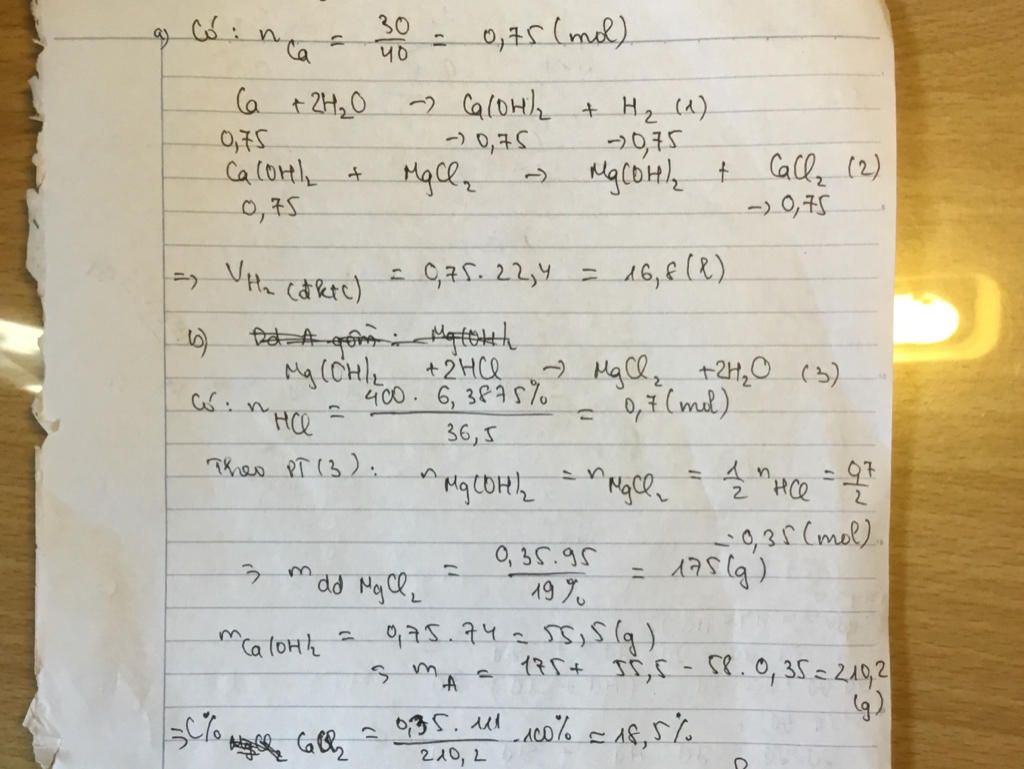 a) Có : n Ca = 30/40 = 0,75 (mol)
Ca + 2H₂O → Ca(OH)₂ + H₂ (1)
0,75 → 0,75 → 0,75
Ca(OH)₂ + MgCl₂ → Mg(OH)₂ + CaCl₂ (2)
0,75 → 0,75
=> V H₂ (đktc) = 0,75 . 22,4 = 16,8 (l)
b) Dd A gồm : Mg(OH)₂
Mg(OH)₂ + 2HCl → MgCl₂ + 2H₂O (3)
Có : n HCl = 400 . 6,3875% / 36,5 = 0,7 (mol)
Theo PT (3) : n Mg(OH)₂ = n MgCl₂ = 1/2 n HCl = 0,7/2
= 0,35 (mol)
=> m dd MgCl₂ = 0,35 . 95 / 19% = 175 (g)
m Ca(OH)₂ = 0,75 . 74 = 55,5 (g)
=> m A = 175 + 55,5 - 58 . 0,35 = 210,2
(g)
=> C% CaCl₂ = 0,35 . 111 / 210,2 . 100% = 18,5%